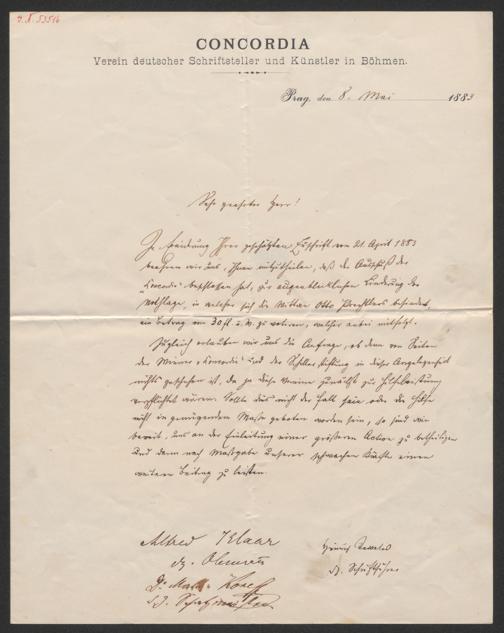 CONCORDIA
Verein deutscher Schriftsteller und Künstler in Böhmen.
Prag, den 8. Mai 1883
Sehr geehrter Herr!
In Ihrer geschätzten Zuschrift vom 21 April 1883
beehren wir uns, Ihnen mitzutheilen, daß der Ausschuß der
Concordia beschlossen hat, zur augenblicklichen Linderung der
Nothlage, in welcher sich die Witwe Otto Prechtlers befindet,
ein Betrag von 30 fl ö. W. zu votieren, welcher mitfolgt.
Zugleich erlauben wir uns die Anfrage, ob denn von Seiten
der Wiener "Concordia" und der Schiller-Stiftung in dieser Angelegenheit
nichts geschehen ist, da ja diese Vereine zunächst zur Hilfeleistung
verpflichtet wären. Sollte dies nicht der Fall sein oder die Hilfe
nicht in genügendem Maße geboten worden sein, so sind wir
bereit, uns an der Einleitung einer größeren Action zu betheiligen
und dann nach Maßgabe unserer schwachen Kräfte einen
weiteren Beitrag zu leisten.
Alfred Klaar
dz. Obmann
Heinrich Teweles
dz. Schriftführer
Dr.
d. Z. Schatzmeister